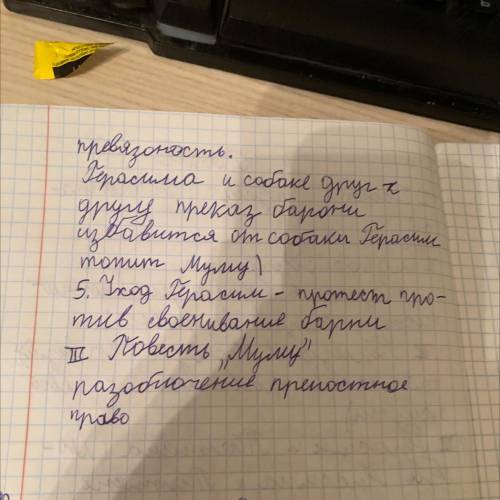 превязоность.
Герасима и собаке друг к
другу преказ барони
избавится от собаки Герасим
топит Муму)
5. Уход Герасим - протест про-
тив своенивание барпи
III Повесть „Муму"
разоблочение препостное
право